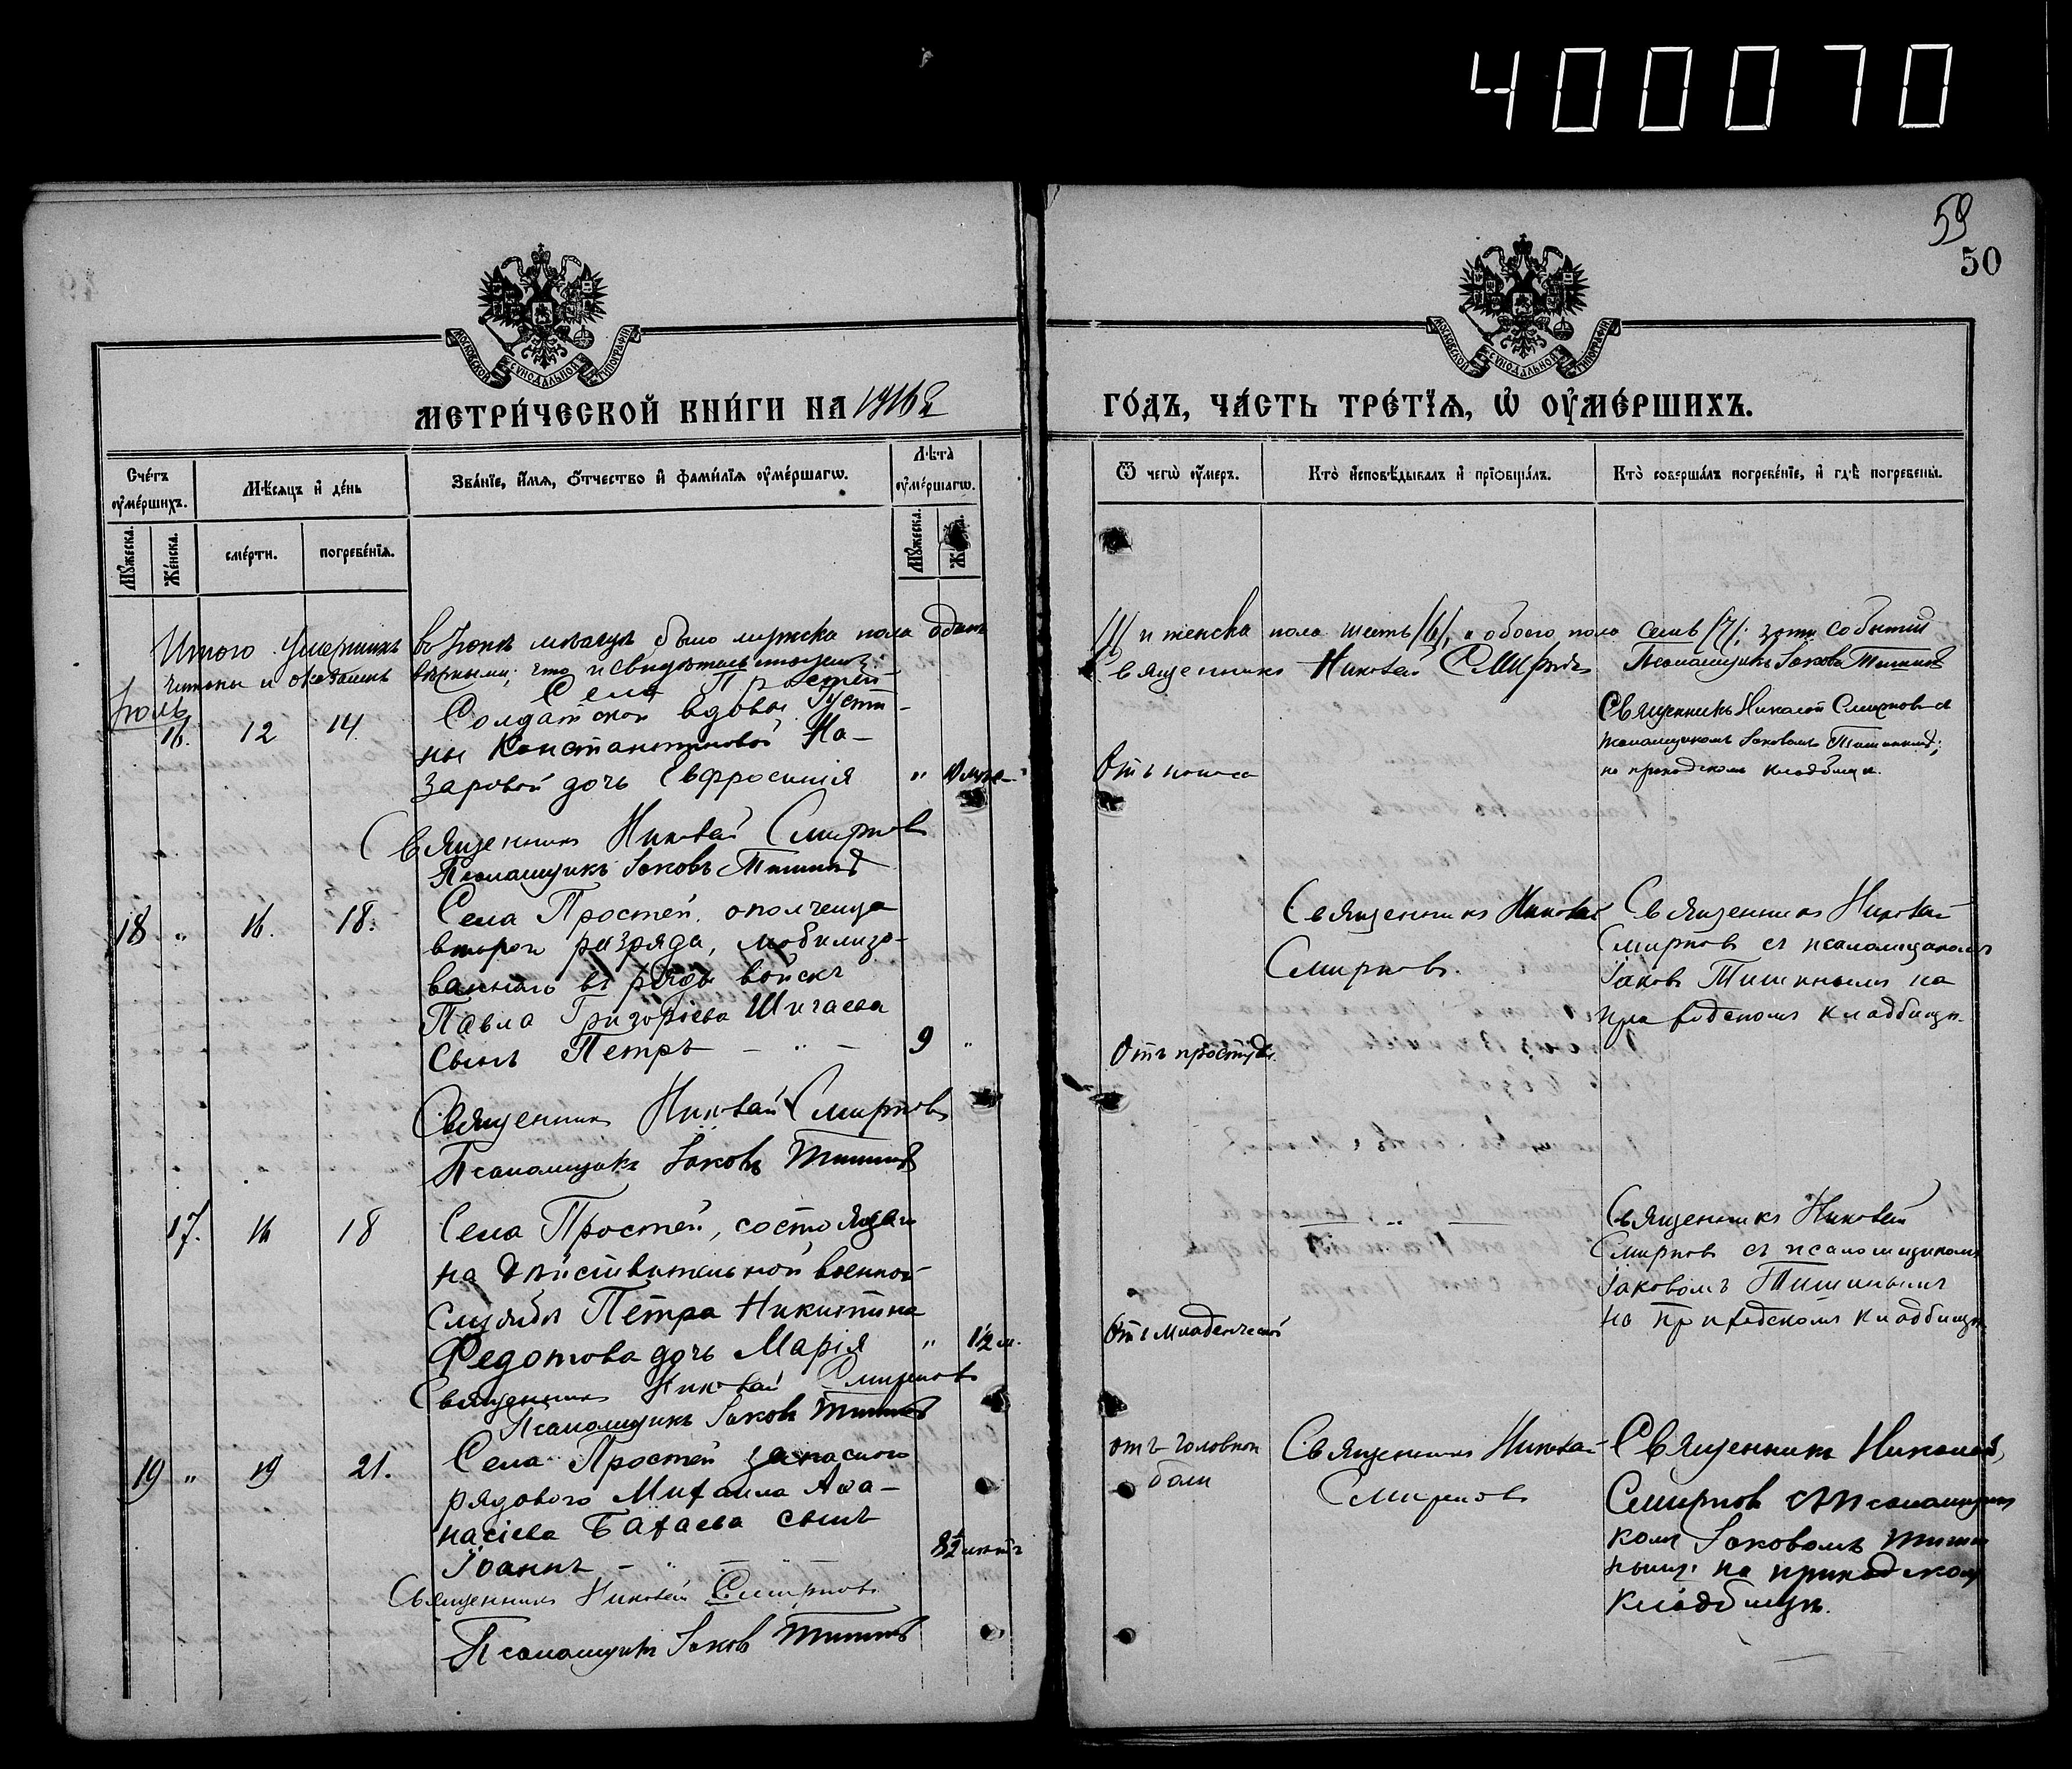 400070
59
50
МОСКОВСКОЙ СѴНОДАЛЬНОЙ ТИПОГРАФІИ
МОСКОВСКОЙ СѴНОДАЛЬНОЙ ТИПОГРАФІИ
МЕТРИ́ЧЕСКОЙ КНИ́ГИ НА 1916 г
ГО́ДЪ, ЧА́СТЬ ТРЕ́ТЇѦ, Ѽ ОУ҆МЕ́РШИХЪ.
Сче́тъ оумéршихъ.
Мѣ́сѧцъ и҆ де́нь
Зва́нїе, и҆́мѧ, ѻ҆́тчество и҆ фами́лїѧ оумéршагѡ.
Лѣ́та̀ оумéршагѡ.
Ѿ чегѡ̀ оу҆́меръ.
Кто̀ и҆сповѣ́дывалъ и҆ прїѡбща́лъ.
Кто̀ соверша́лъ погребе́нїе, и҆ гдѣ̀ погребены̀.
Мꙋ́жеска.
Же́нска.
сме́рти.
погребе́нїѧ.
Мꙋ́жеска.
Же́нска.
Итого умершихъ въ Іюнѣ мѣсяцѣ было мужска пола одинъ /1/ и женска пола шесть /6/, а обоего пола семь /7/; зоти событій
вѣрными; что и свидѣтельствуемъ: Священникъ Николай Смирновъ Псаломщикъ Іаковъ Тишинъ
Іюль
16. 12 14
Села Простей
Солдатской вдовы Усти-
ны Константиновой На-
заровой дочь Евфросинія "
Отъ поноса
Священникъ Николай Смирновъ съ
псаломщикомъ Іаковомъ Тишинымъ;
на приходскомъ кладбищѣ.
Священникъ Николай Смирновъ
Псаломщикъ Іаковъ Тишинъ
18 " 16. 18.
Села Простей, ополченца
второго разряда, мобилизо-
ваннаго въ ряды войскъ
Павла Григоріева Шигаева
сынъ Петръ — " — 9 "
Отъ простуды.
Священникъ Николай
Смирновъ.
Священникъ Николай
Смирновъ съ псаломщикомъ
Іаковъ Тишинымъ на
приходскомъ кладбищѣ.
Священникъ Николай Смирновъ
Псаломщикъ Іаковъ Тишинъ
17. 16 18
Села Простей, состоящаго
на дѣйствительной военной
службѣ Петра Никитина
Федотова дочь Марія " 1½ м.
Отъ младенческой
— " —
Священникъ Николай
Смирновъ съ псаломщикомъ
Іаковомъ Тишинымъ
на приходскомъ кладбищѣ
Священникъ Николай Смирновъ
Псаломщикъ Іаковъ Тишинъ
19 " 19 21.
Села Простей запасного
рядового Михаила Аѳа-
насіева Бахаева сынъ
Іоаннъ — " — " —
отъ головной
боли
Священникъ Николай
Смирновъ
Священникъ Николай
Смирновъ съ псаломщи
комъ Іаковомъ Тиши
нымъ на приходском
кладбищѣ.
Священникъ Николай Смирновъ
Псаломщикъ Іаковъ Тишинъ